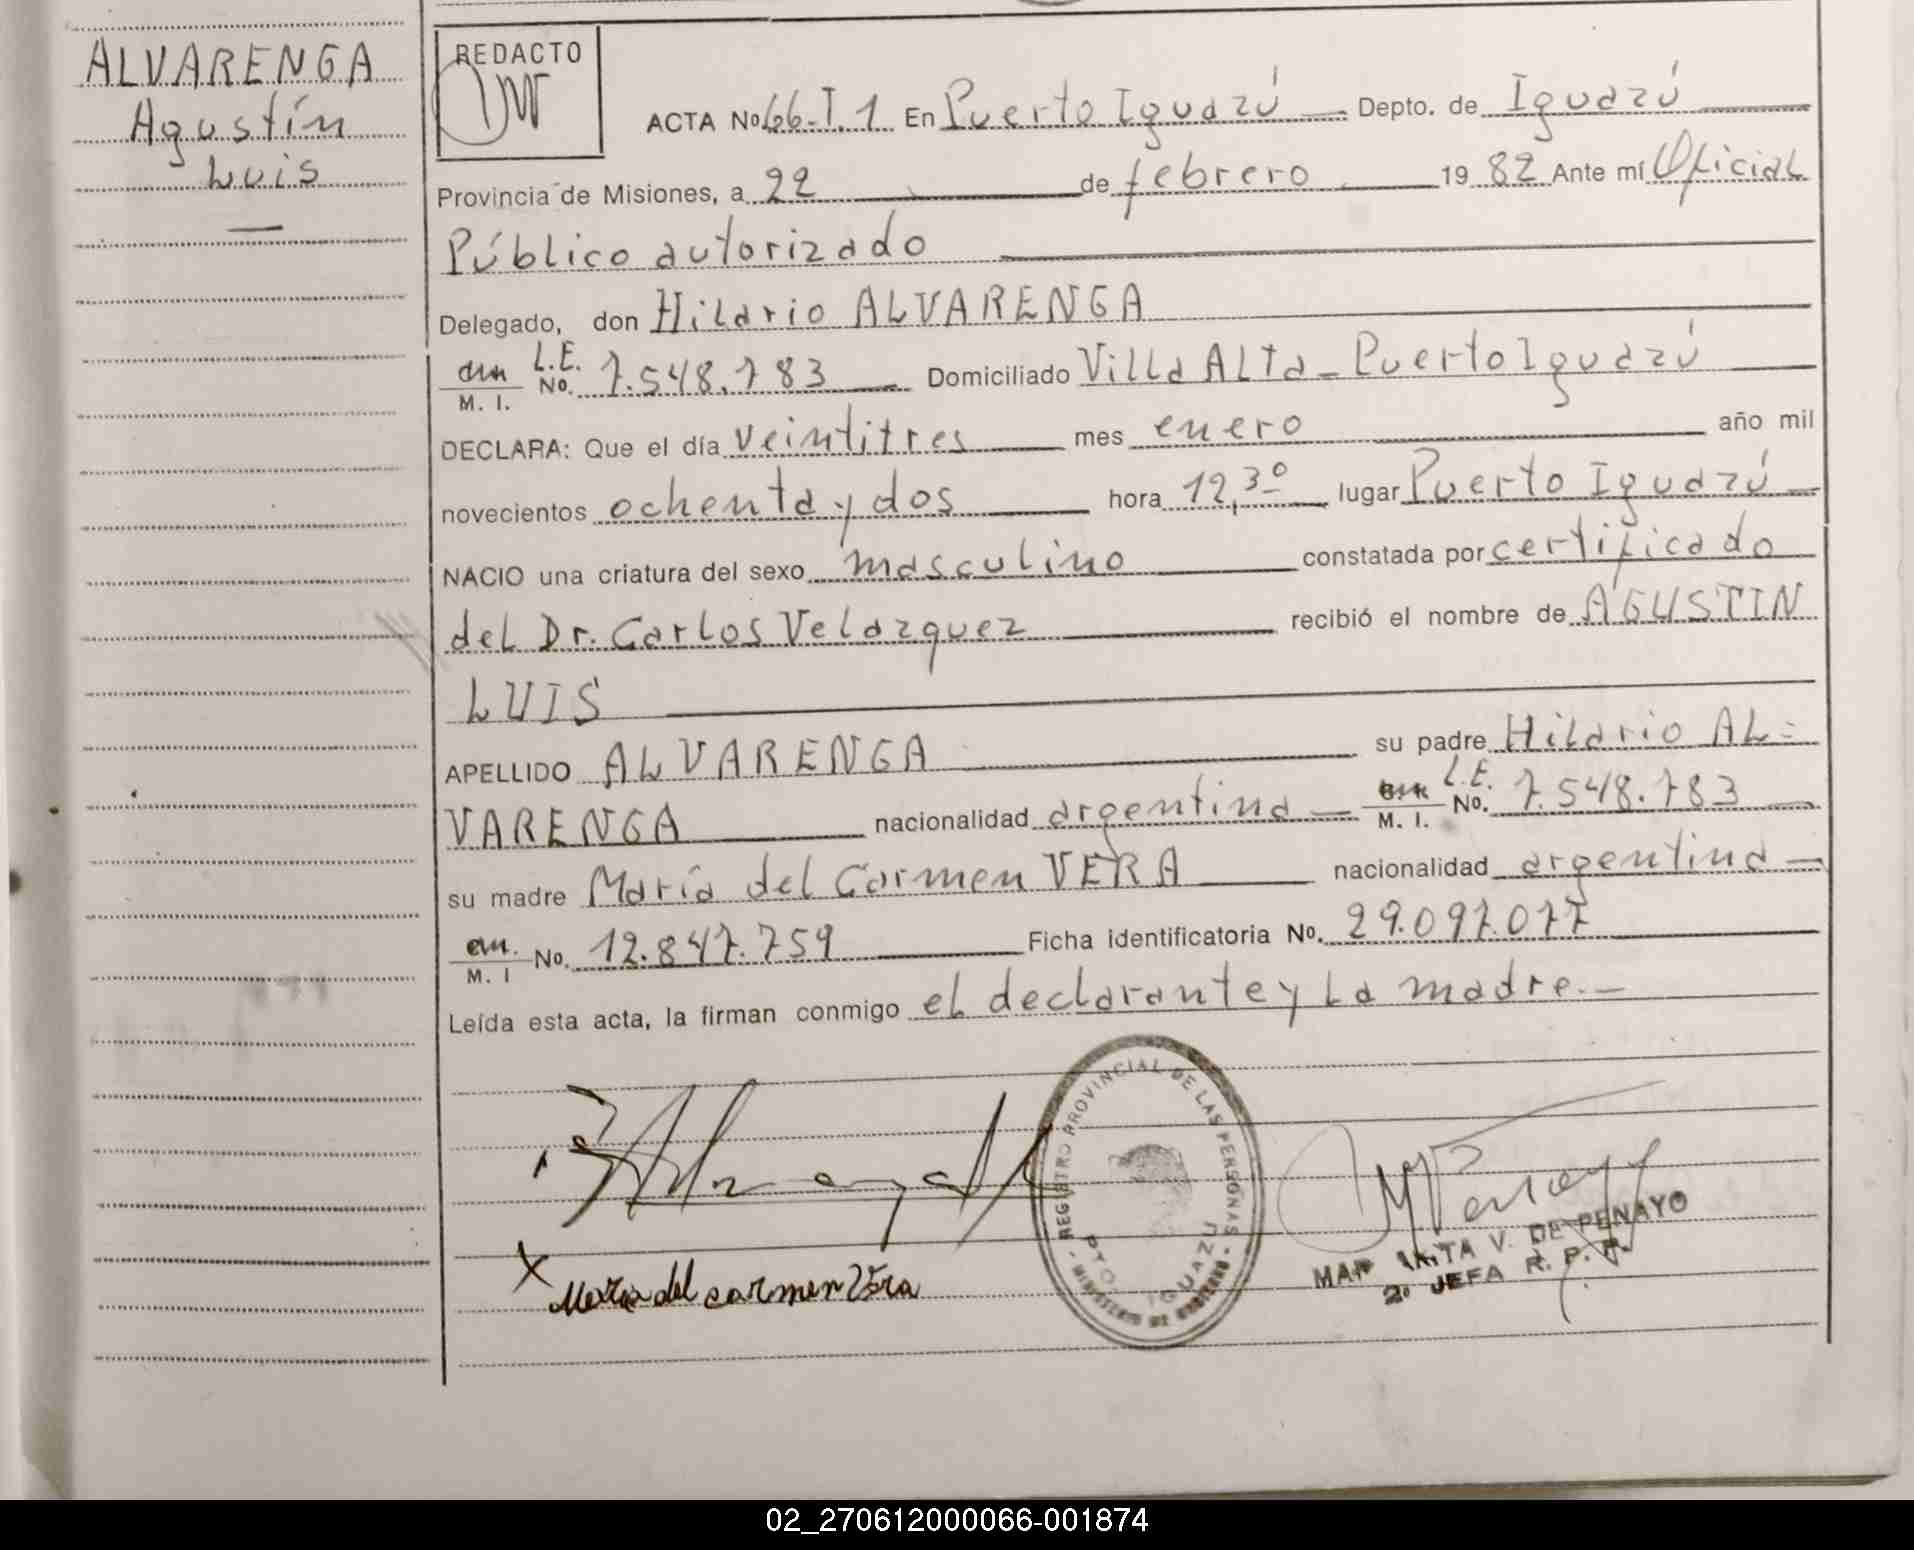 ALVARENGA
Agustín
Luis
REDACTO
ACTA No. 66-T.1 En Puerto Iguazú Depto. de Iguazú
Provincia de Misiones, a 22 de febrero 19 82 Ante mí Oficial
Público autorizado
Delegado, don Hilario ALVARENGA
M. I. L.E. No. 7.548.783 Domiciliado Villa Alta - Puerto Iguazú
DECLARA: Que el día veintitres mes enero año mil
novecientos ochenta y dos hora 12,30 lugar Puerto Iguazú
NACIO una criatura del sexo masculino constatada por certificado
del Dr. Carlos Velazquez recibió el nombre de AGUSTIN
LUIS
APELLIDO ALVARENGA su padre Hilario AL=
VARENGA nacionalidad argentina M. I. L.E. No. 7.548.783
su madre María del Carmen VERA nacionalidad argentina
M. I No. 12.847.759 Ficha identificatoria No. 29.097.077
Leída esta acta, la firman conmigo el declarante y la madre.-
REGISTRO PROVINCIAL DE LAS PERSONAS
PTO. IGUAZU
- MINISTERIO DE GOBIERNO -
V. DE PENAYO
2º JEFA R. P. P.
X Maria del carmen Vera
02_270612000066-001874